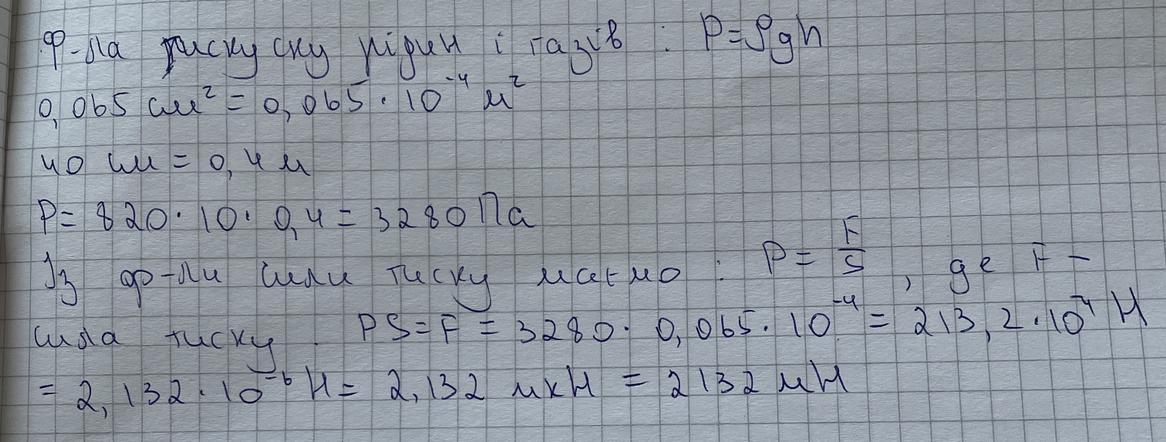 Ф-ла тиску ску рідин і газів : P=ρgh
0,065 см² = 0,065 · 10⁻⁴ м²
40 см = 0,4 м
P = 820 · 10 · 0,4 = 3280 Па
Із ф-ли сили тиску маємо : P = F/S , де F –
сила тиску . PS = F = 3280 · 0,065 · 10⁻⁴ = 213,2 · 10⁻⁴ Н
= 2,132 · 10⁻⁶ Н = 2,132 мкН = 2132 мН